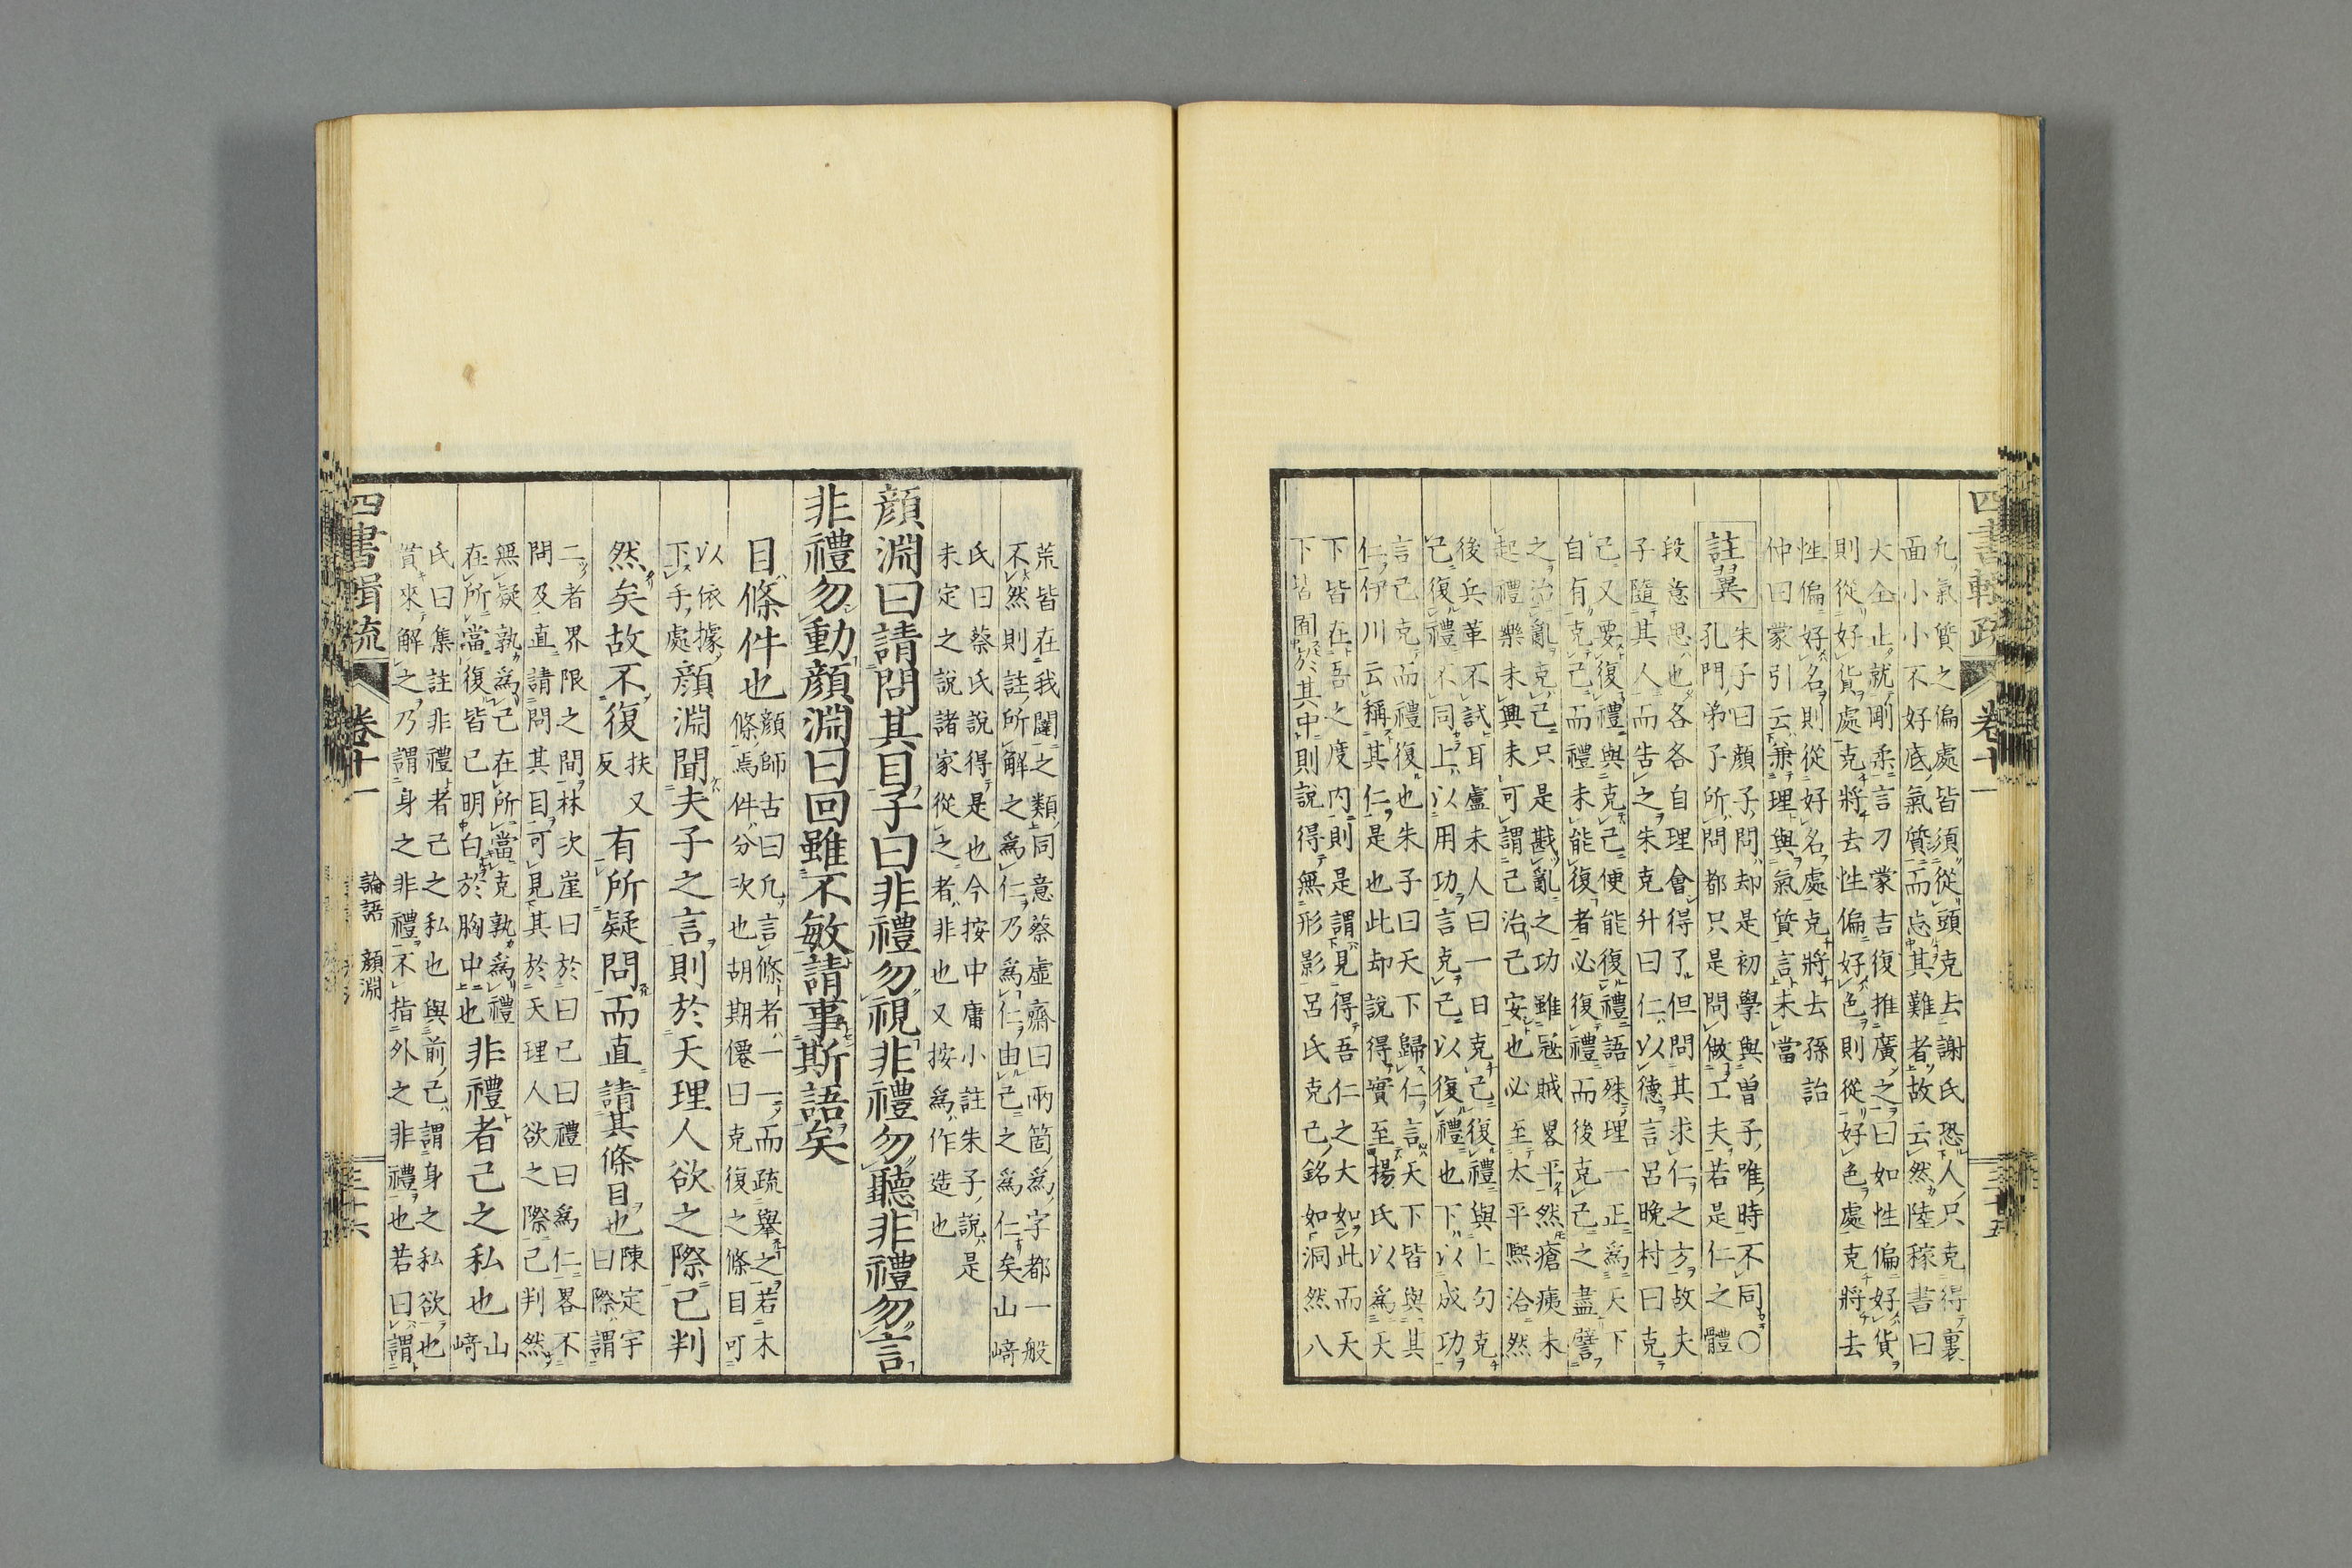 四書輯疏
卷十一
三十五
凢氣質之偏處皆須從頭克去謝氏恐人只克得裏
面小小不好底氣質而忘其難者故云然陸稼書曰
大全止就剛柔言刁蒙吉復推廣之曰如性偏好貨
則從好貨處克將去性偏好色則從好色處克將去
性偏好名則從好名處克將去孫詒
仲曰蒙引云兼理與氣質言未當
註翼
朱子曰顔子問却是初學與曽子唯時不同○
孔門弟子所問都只是問做工夫若是仁之體
段意思也各各自理會得了但問其求仁之方故夫
子隨其人而告之朱克升曰仁以德言呂晚村曰克
己又要復禮與克己便能復禮語殊理一正爲天下
自有克己而禮未能復者必復禮而後克己之盡譬
之治亂克己只是戡亂之功雖冦賊畧平然瘡痍未
起禮樂未興未可謂己治己安也必至太平熈洽然
後兵革不試耳盧未人曰一日克己復禮與上句克
己復禮不同上以用功言克己以復禮也下以成功
言己克而禮復也朱子曰天下歸仁言天下皆與其
仁伊川云稱其仁是也此却說得實至楊氏以爲天
下皆在吾之度内則是謂見得吾仁之大如此而天
下皆囿於其中則說得無形影呂氏克己銘如洞然八
荒皆在我闥之類同意蔡虛齋曰兩箇爲字都一般
不然則註所解之爲仁乃爲仁由己之爲仁矣山﨑
氏曰蔡氏說得是也今按中庸小註朱子說是
未定之說諸家從之者非也又按爲作造也
顔淵曰請問其目子曰非禮勿視非禮勿聽非禮勿言
非禮勿動顔淵曰回雖不敏請事斯語矣
目條件也
顔師古曰凢言條者一一而疏舉之若木
條焉件分次也胡期僊曰克復之條目可
以依據
下手處
顔淵聞夫子之言則於天理人欲之際已判
然矣故不復
扶又
反
有所疑問而直請其條目也
陳定宇
曰際謂
二者界限之間林次崖曰於曰已曰禮曰爲仁畧不
問及直請問其目可見其於天理人欲之際已判然
無疑孰爲己在所當克孰爲禮
在所當復皆已明白於胸中也
非禮者己之私也
山
﨑
氏曰集註非禮者己之私也與前己謂身之私欲也
貰來解之乃謂身之非禮不指外之非禮也若曰謂
四書輯疏
卷十一
論語
顔淵
三十六